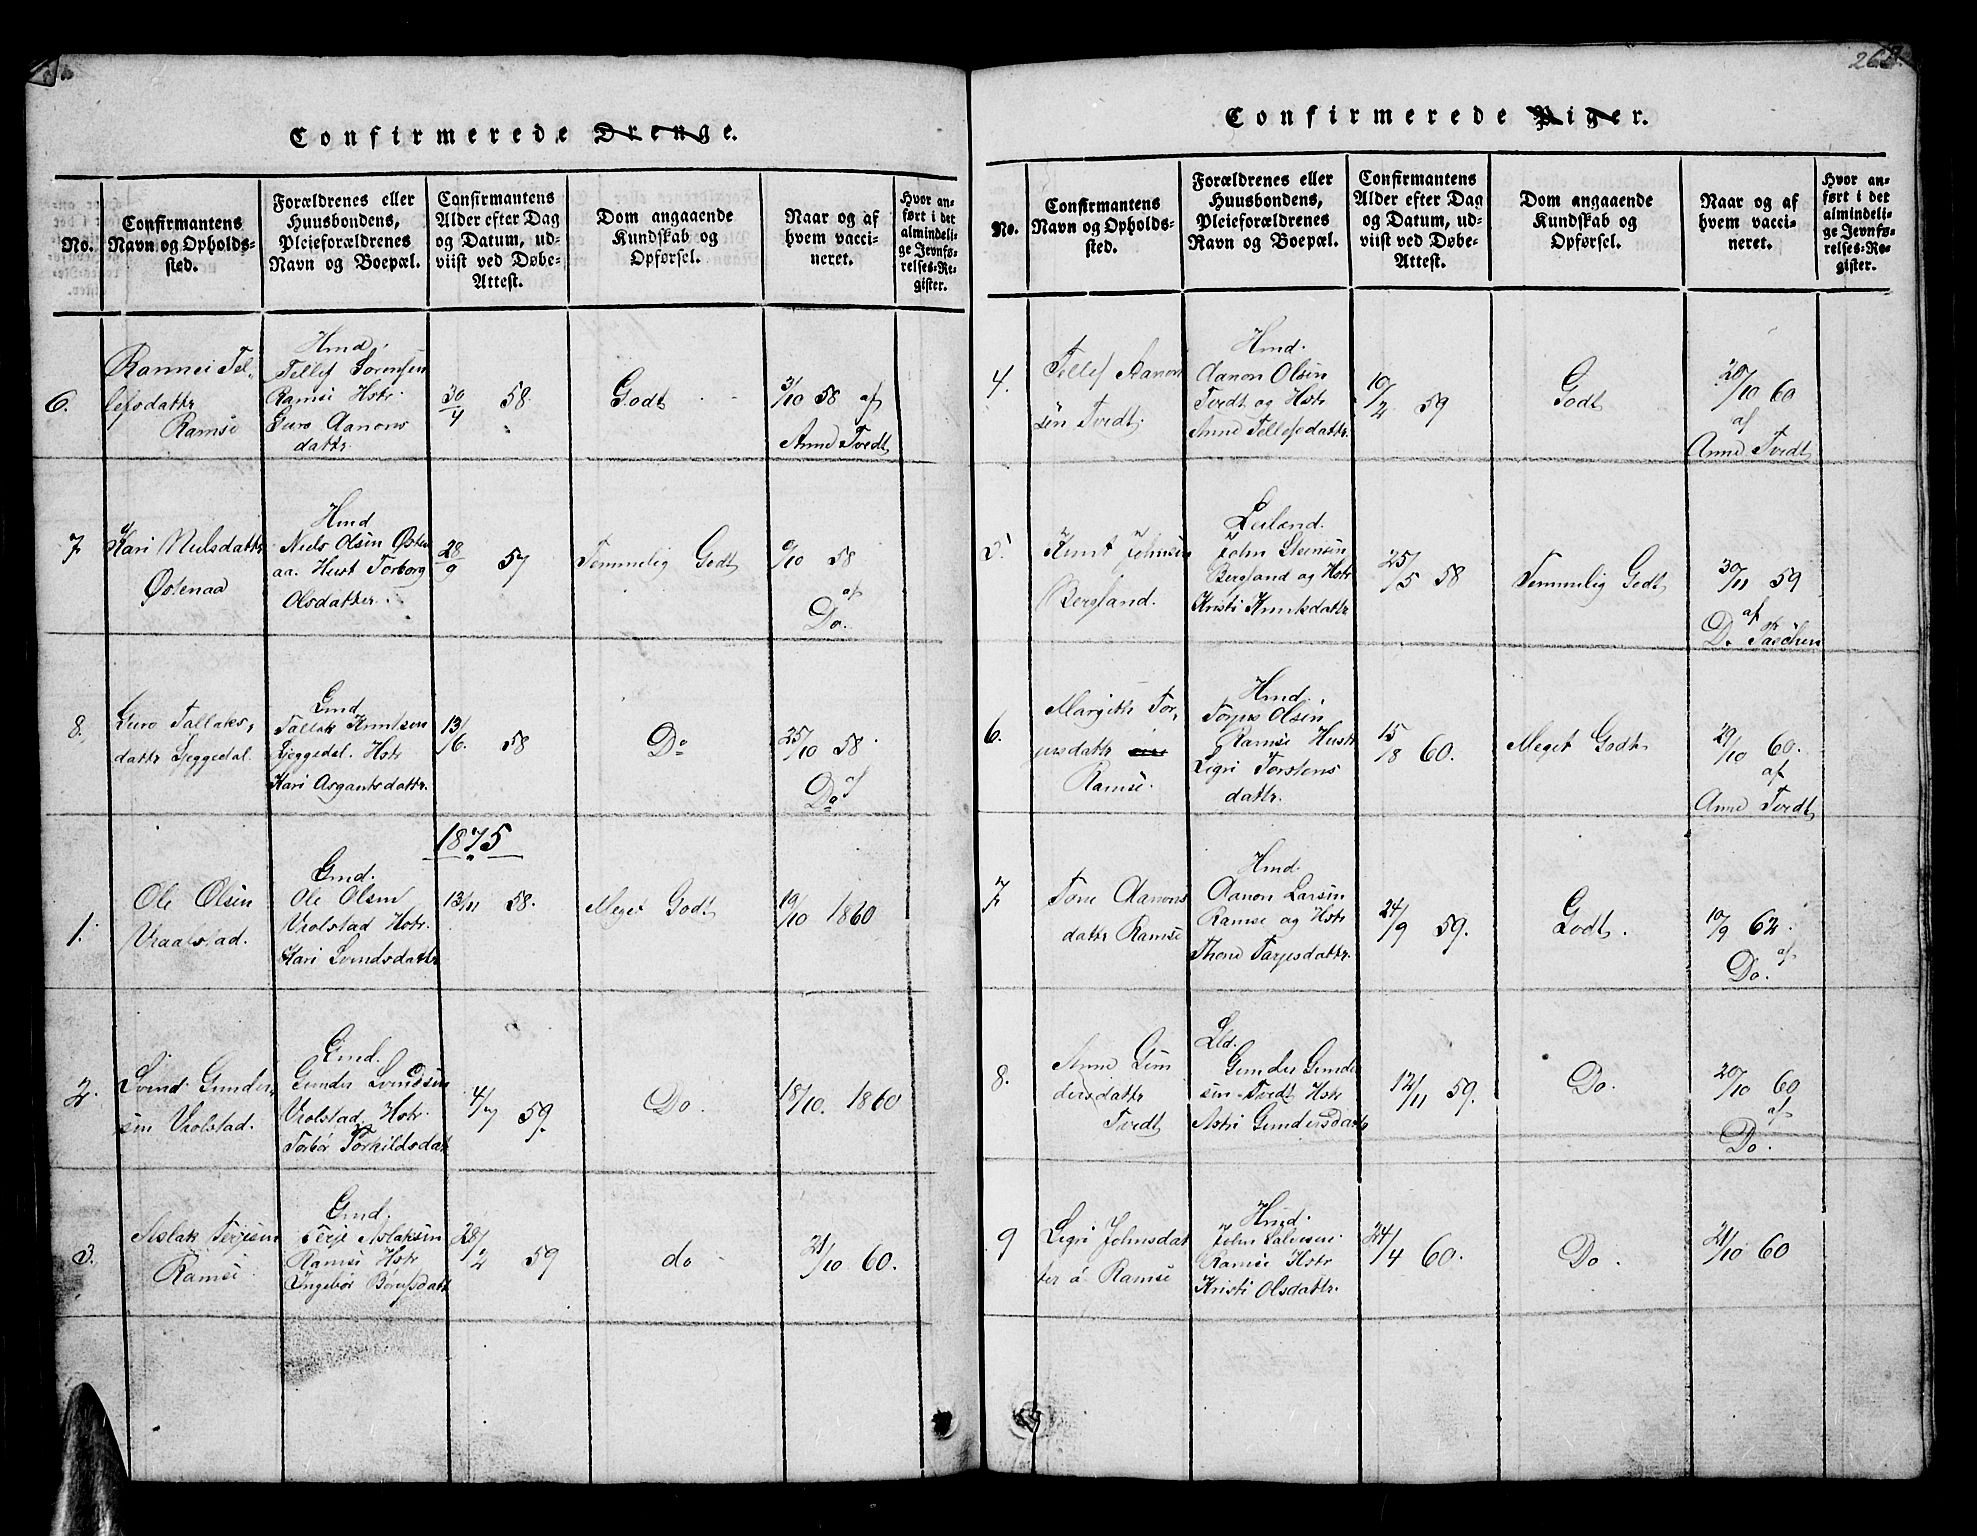 Confirmerede Drenge.
No.
Confirmantens
Navn og Opholds-
sted.
Forældrenes eller
Huusbondens,
Pleieforældrenes
Navn og Boepæl.
Confirmantens
Alder efter Dag
og Datum, ud-
viist ved Døbe-
Attest.
Dom angaaende
Kundskab og
Opførsel.
Naar og af
hvem vacci-
neret.
Hvor an-
ført i det
almindeli-
ge Jevnfø-
relses-Re-
gister.
6.
Rannei Tel-
lefsdattr
Ramse
Hmd.
Tellef Sørensen
Ramse Hstr.
Guro Aanons
dattr.
30/4 58.
Godt
31/10 58 af
Anne Tvedt
7
Kari Nielsdattr
Østenaa
Hmd
Niels Olsen Østen
aa. Hust Torborg
Olsdatter.
28/9 57
Temmelig Godt
9/10 58
af
Do.
8.
Guro Tallaks-
dattr Ljeggedal
Gmd
Tallak Knutsen
Ljeggedal. Hstr
Kari Asgautsdattr.
13/6. 58
Do
25/10 58.
af
Do
1875
1.
Ole Olsen
Vraalstad.
Gmd.
Ole Olsen
Vrolstad Hstr.
Kari Svendsdattr
13/11 58.
Meget Godt
19/10 1860
2.
Svend Gunder-
sen Vrolstad.
Gmd.
Gunder Svendsen
Vrolstad, Hstr.
Torbør Torkildsdat
4/7 59.
Do.
18/10. 1860
3.
Aslak Terjesen
Ramse
Gmd.
Terje Aslaksen
Ramse Hstr
Ingebør
28/2 59
do
21/10 60.
Confirmerede Piger.
No.
Confirmantens
Navn og Opholds-
sted.
Forældrenes eller
Huusbondens,
Pleieforældrenes
Navn og Boepæl.
Confirmantens
Alder efter Dag
og Datum, ud-
viist ved Døbe-
Attest.
Dom angaaende
Kundskab og
Opførsel.
Naar og af
hvem vacci-
neret.
Hvor an-
ført i det
almindeli-
ge Jevnfø-
relses-Re-
gister.
4.
Tellef Aanon
sen Tvedt.
Hmd.
Aanon Olsen
Tvedt og Hstr
Anne Tellefsdattr.
10/2 59
Godt
20/10 60
af
Anne Tvedt
5.
Knut Johnsen
Bergland.
Leilænd.
John Steensen
Bergland og Hstr
Kristi Knutsdattr
25/5 58
Temmelig Godt
30/11 59
af
6.
Margith Tor-
jusdattr
Ramse.
Hmd.
Torjus Olsen
Ramse Hustr
Sigri Torstens
dattr.
15/8 60.
Meget Godt
29/10 60.
af
Anne Tvedt
7
Tone Aanons
dattr Ramse
Hmd.
Aanon Larsen
Ramse og Hstr
Thone Tarjesdattr.
24/9 59.
Godt.
10/9 62.
af
Do.
8.
Anne Gun
dersdattr
Tvedt
Lld.
Gunder Gunder
sen Tvedt Hstr
Astri Gundersdattr
12/11 59.
Do.
20/10 60
af
Do.
9
Sigri Johnsdat
ter á Ramse
Hmd.
John Salvesen
Ramse Hstr
Kristi Olsdattr.
24/4 60.
Do.
21/10 60